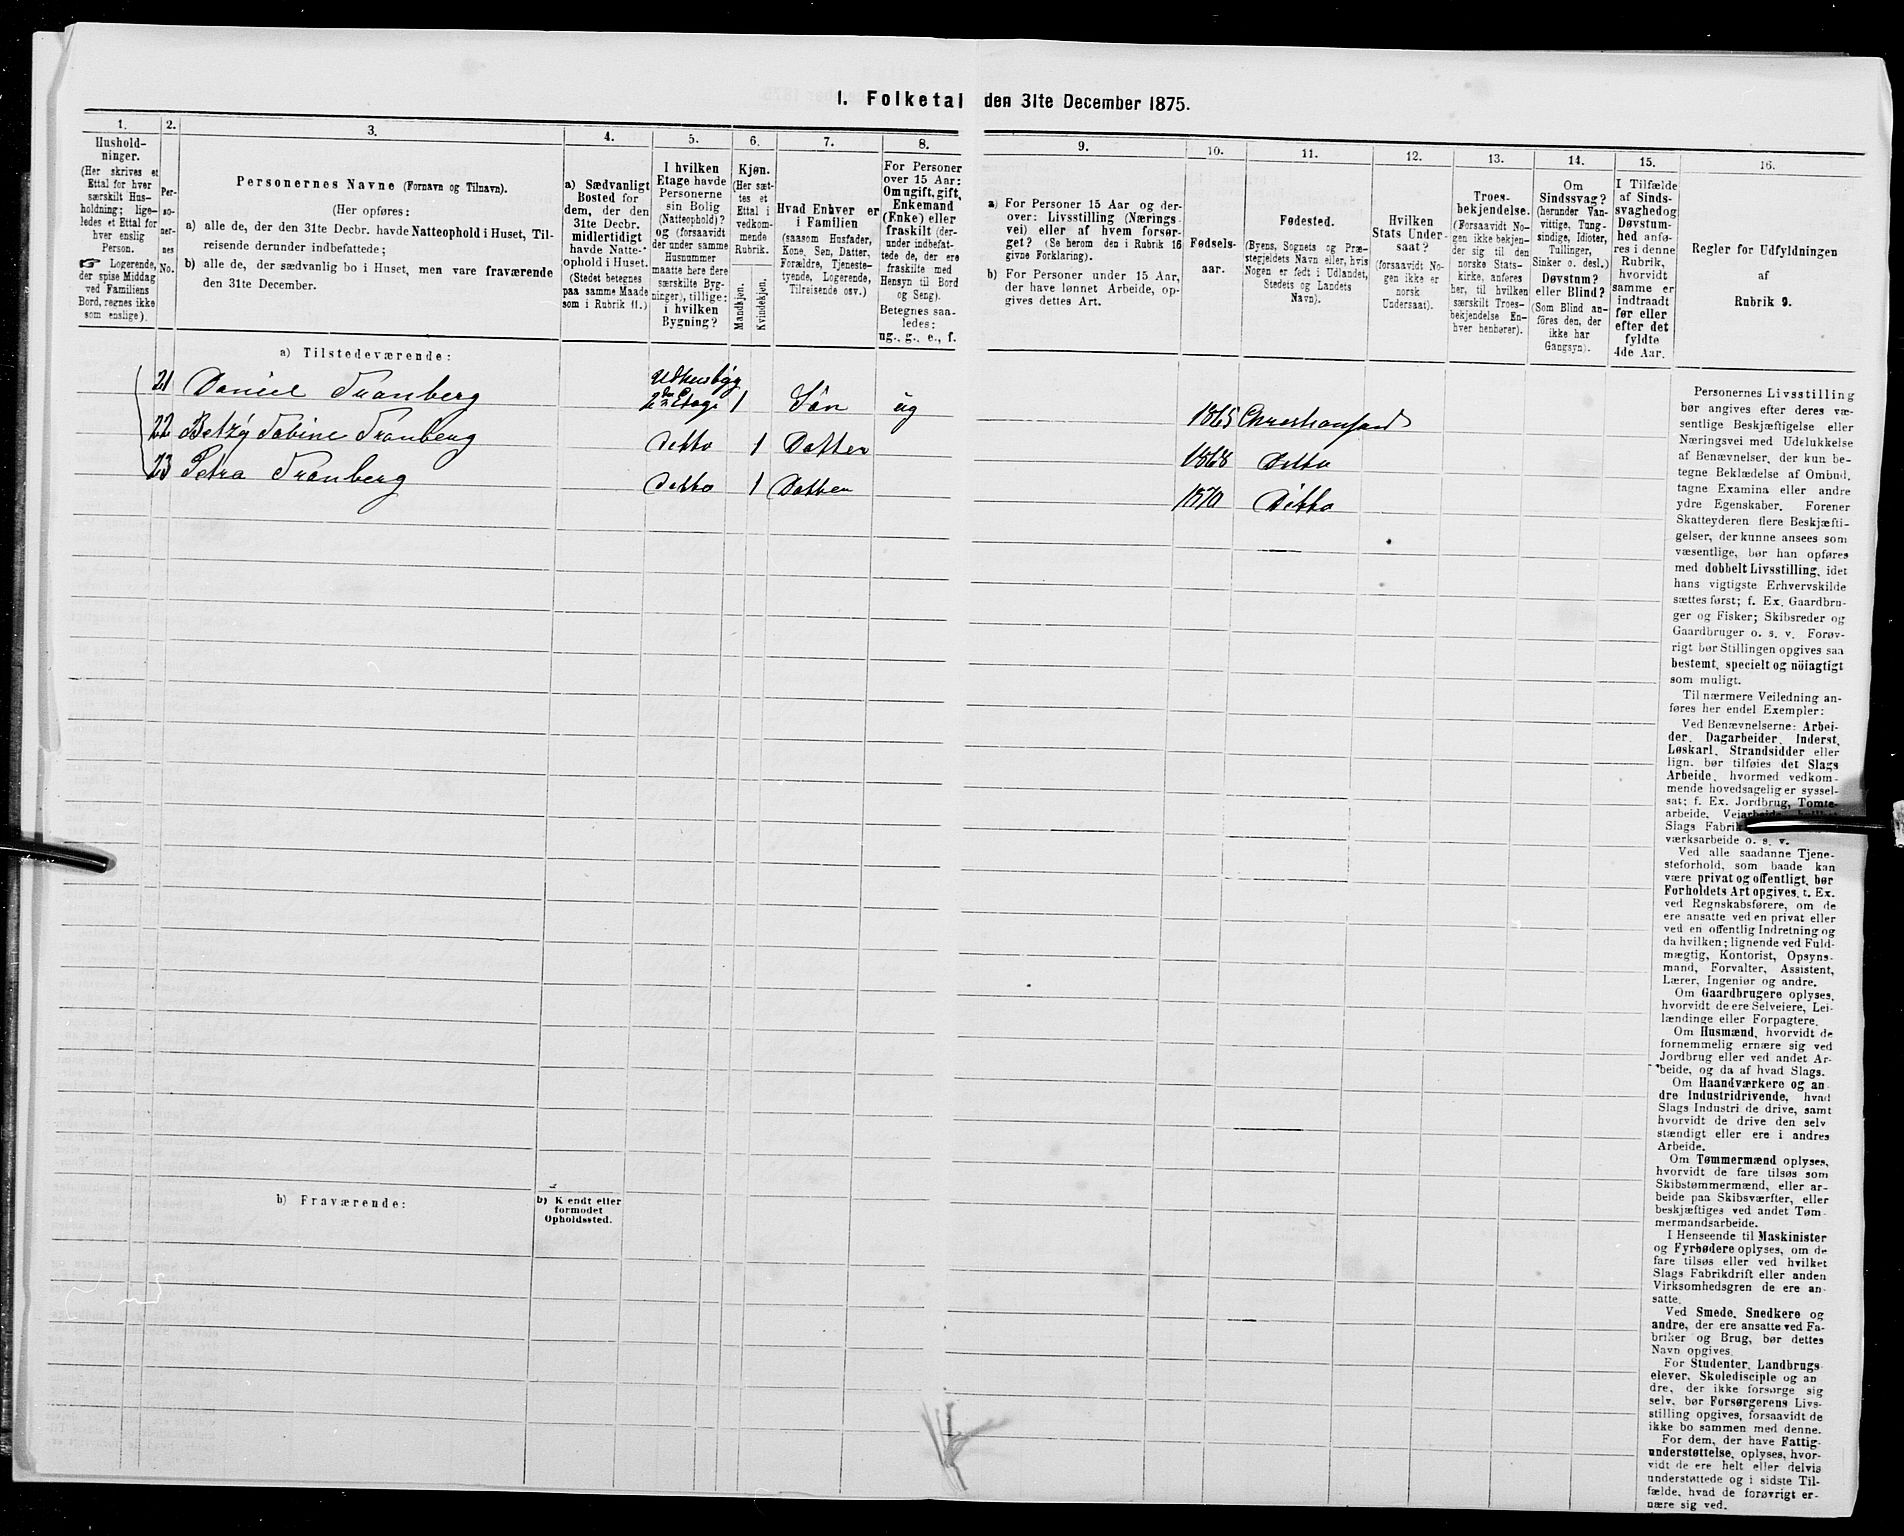 I. Folketal den 31te December 1875.
1.
Hushold-
ninger.
(Her skrives et
Ettal for hver
særskilt Hus-
holdning; lige-
ledes et Ettal for
hver enslig
Person.
☞ Logerende,
der spise Middag
ved Familiens
Bord, regnes ikke
som enslige).
2.
Per-
so-
ner-
nes
No.
3.
Personernes Navne (Fornavn og Tilnavn).
(Her opføres:
a) alle de, der den 31te Decbr. havde Natteophold i Huset, Til-
reisende derunder indbefattede;
b) alle de, der sædvanlig bo i Huset, men vare fraværende
den 31te December.
4.
a) Sædvanligt
Bosted for
dem, der den
31te Decbr.
midlertidigt
havde Natte-
ophold i Huset.
(Stedet betegnes
paa samme Maade
som i Rubrik 11.)
5.
I hvilken
Etage havde
Personerne
sin Bolig
(Natteophold)?
og (forsaavidt
der under samme
Husnummer
maatte høre flere
særskilte Byg-
ninger), tillige:
i hvilken
Bygning?
6.
Kjøn.
(Her sæt-
tes et
Ettal i
vedkom-
mende
Rubrik.
Mandkjøn.
Kvindekjøn.
7.
Hvad Enhver er
i Familien
(saasom Husfader,
Kone, Søn, Datter,
Forældre, Tjeneste-
tyende, Logerende,
Tilreisende osv.)
8.
For Personer
over 15 Aar:
Om ugift, gift,
Enkemand
(Enke) eller
fraskilt (der-
under indbefat-
tede de, der ere
fraskilte med
Hensyn til Bord
og Seng).
Betegnes saa-
ledes:
ug., g., e., f.
9.
a) For Personer 15 Aar og der-
over: Livsstilling (Nærings-
vei) eller af hvem forsør-
get? (Se herom den i Rubrik 16
givne Forklaring).
b) For Personer under 15 Aar,
der have lønnet Arbeide, op-
gives dettes Art.
10.
Fødsels-
aar.
11.
Fødested.
(Byens, Sognets og Præ-
stegjeldets Navn eller, hvis
Nogen er født i Udlandet,
Stedets og Landets
Navn).
12.
Hvilken
Stats Under-
saat?
(forsaavidt No-
gen ikke er
norsk
Undersaat).
13.
Troes-
bekjendelse.
(Forsaavidt No-
gen ikke bekjen-
der sig til den
norske Stats-
kirke, anføres
her, til hvilken
særskilt Troes-
bekjendelse En-
hver henhører).
14.
Om
Sindssvag?
(herunder Van-
vittige, Tung-
sindige, Idioter,
Tullinger,
Sinker o. desl.)
Døvstum?
eller Blind?
(Som Blind an-
føres den, der
ikke har
Gangsyn).
15.
I Tilfælde
af Sinds-
svaghed og
Døvstum-
hed anfø-
res i denne
Rubrik,
hvorvidt
samme er
indtraadt
før eller
efter det
fyldte
4de Aar.
16.
Regler for Udfyldningen
af
Rubrik 9.
a) Tilstedeværende:
21 Daniel Tranberg Udhusbyg 2den Etage 1 Søn ug 1865 Christiansand
22 Betzy Tobine Tranberg Ditto 1 Datter 1868 Ditto
23 Petra Tranberg Ditto 1 Datter 1870 Ditto
b) Fraværende:
b) Kjendt eller
formodet
Opholdssted.
Personernes Livsstilling
bør angives efter deres væ-
sentlige Beskjæftigelse eller
Næringsvei med Udelukkelse
af Benævnelser, der kun be-
tegne Beklædelse af Ombud,
tagne Examina eller andre
ydre Egenskaber. Forener
Skatteyderen flere Beskjæfti-
gelser, der kunne ansees som
væsentlige, bør han opføres
med dobbelt Livsstilling, idet
hans vigtigste Erhvervskilde
sættes først; f. Ex. Gaardbru-
ger og Fisker; Skibsreder og
Gaardbruger o. s. v. Forøv-
rigt bør Stillingen opgives saa
bestemt, specielt og nöiagtigt
som muligt.
Til nærmere Veiledning an-
føres her endel Exempler:
Ved Benævnelserne: Arbei-
der, Dagarbeider, Inderst,
Løskarl, Strandsidder eller
lign. bør tilføies det Slags
Arbeide, hvormed vedkom-
mende hovedsagelig er syssel-
sat; f. Ex. Jordbrug, Tomte-
arbeide, Veiarbeide,
Slags Fabrik
værksarbeide o. s. v.
Ved alle saadanne Tjene-
steforhold, som baade kan
være privat og offentligt, bør
Forholdets Art opgives, f. Ex.
ved Regnskabsførere, om de
ere ansatte ved en privat eller
ved en offentlig Indretning og
da hvilken; lignende ved Fuld-
mægtig, Kontorist, Opsyns-
mand, Forvalter, Assistent,
Lærer, Ingeniør og andre.
Om Gaardbrugere oplyses,
hvorvidt de ere Selveiere, Lei-
lændinge eller Forpagtere.
Om Husmænd, hvorvidt de
fornemmelig ernære sig ved
Jordbrug eller ved andet Ar-
beide, og da af hvad Slags.
Om Haandværkere og an
dre Industridrivende, hvad
Slags Industri de drive, samt
hvorvidt de drive den selv
stændigt eller ere i andres
Arbeide.
Om Tømmermænd oplyses,
hvorvidt de fare tilsøs som
Skibstømmermænd, eller ar-
beide paa Skibsværfter, eller
beskjæftiges ved andet Tøm-
mermandsarbeide.
I Henseende til Maskinister
og Fyrbødere oplyses, om de
fare tilsøs eller ved hvilket
Slags Fabrikdrift eller anden
Virksomhedsgren de ere an-
satte.
Ved Smede, Snedkere og
andre, der ere ansatte ved Fa-
briker og Brug, bør dettes
Navn opgives.
For Studenter, Landbrugs
elever, Skoledisciple og an
dre, der ikke forsørge sig
selv, bør Forsørgerens Livs-
stilling opgives, forsaavidt de
ikke bo sammen med denne.
For dem, der have Fattig-
understøttelse, oplyses, hvor-
vidt de ere helt eller delvis
understøttede og i sidste Til-
fælde, hvad de forøvrigt er-
nære sig ved.